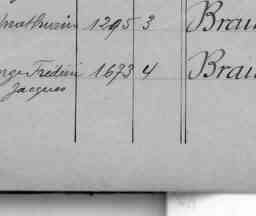 Mathurin 1295 3 Brau
Frédéric 1673 4 Brau
Jacques